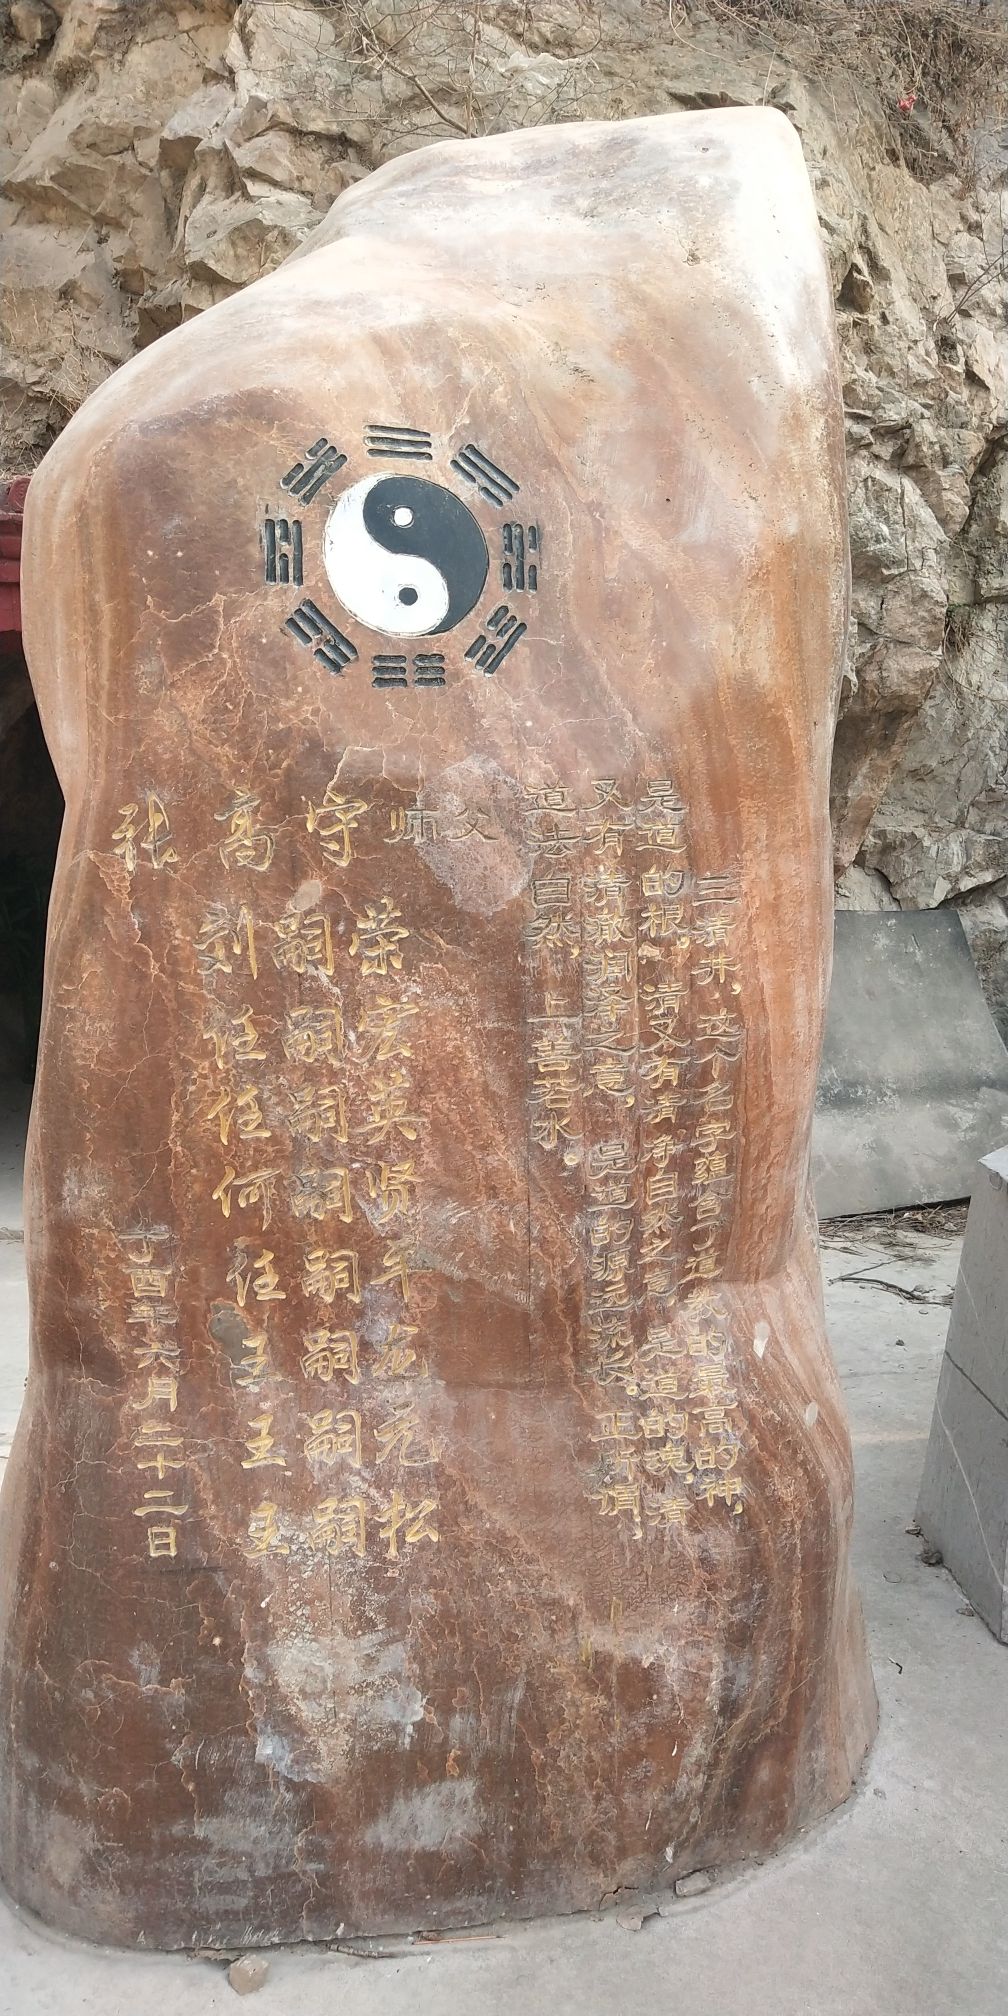 三清井，这个名字蕴含了道教的最高的神，
是道的根，清又有清净自然之意，是道的魂，清
又有清澈润泽之意，是道的源远流长。正所谓，
道法自然，上善若水。
张高守师父
刘嗣荣
任嗣宏
任嗣英
何嗣贤
任嗣年
王嗣龙
王嗣元
王嗣松
丁酉年六月二十二日